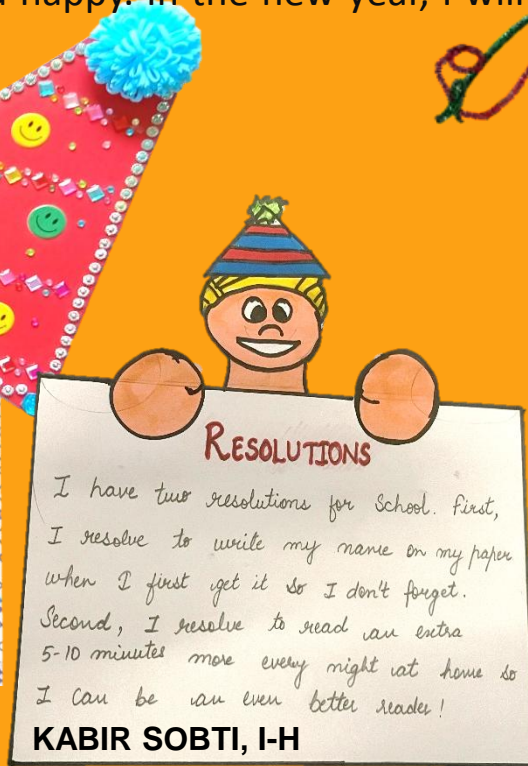 happy. In the new year, I will
RESOLUTIONS
I have two resolutions for School. First,
I resolve to write my name on my paper
when I first get it so I don't forget.
Second, I resolve to read an extra
5-10 minutes more every night at home so
I can be an even better reader!
KABIR SOBTI, I-H